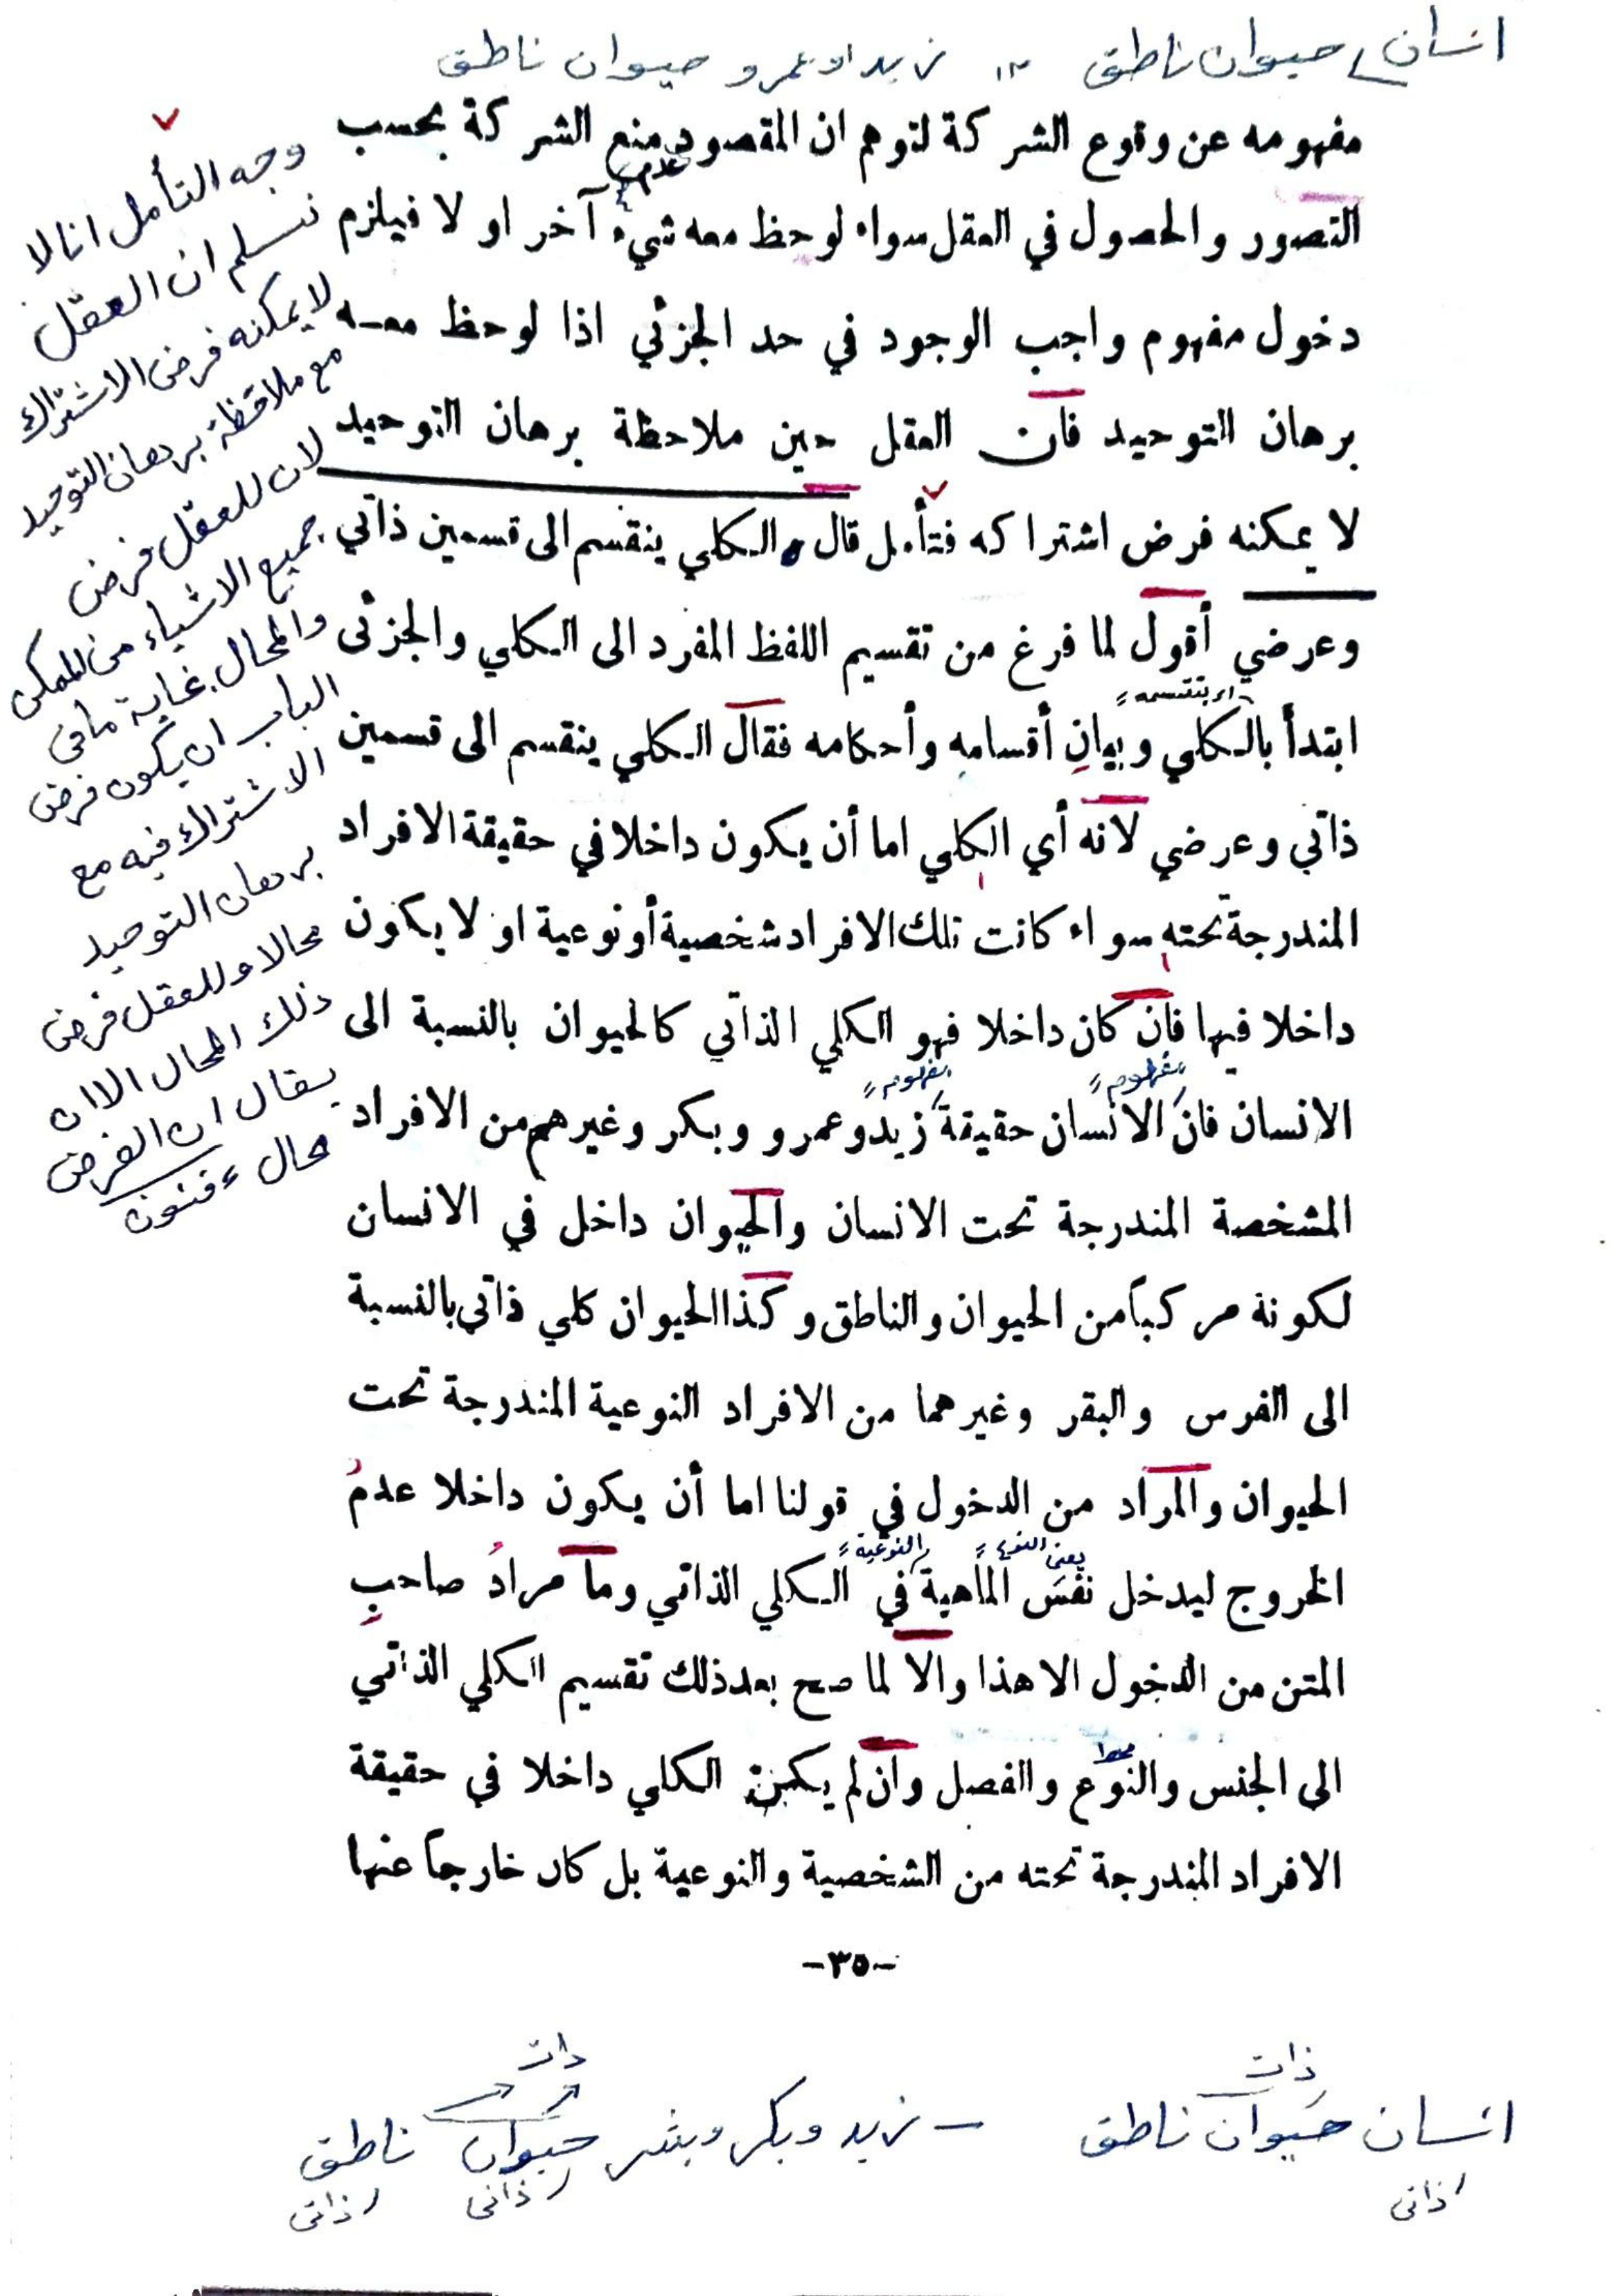 انسان حيوان ناطق زيد او عمرو حيوان ناطق
مفهومه عن وقوع الشركة لتوهم ان المقصود منع الشركة بحسب
التصور والحصول في العقل سواء لوحظ معه شيء آخر او لا فيلزم
دخول مفهوم واجب الوجود في حد الجزئي اذا لوحظ معه
برهان التوحيد فان العقل حين ملاحظة برهان التوحيد
لا يمكنه فرض اشتراكه فتأمل قال الكلي ينقسم الى قسمين ذاتي
وعرضي أقول لما فرغ من تقسيم اللفظ المفرد الى الكلي والجزئى
اى بتقسيمه
ابتدأ بالكلي وبيانِ أقسامه وأحكامه فقال الكلي ينقسم الى قسمين
ذاتي وعرضي لانه أي الكلي اما أن يكون داخلا في حقيقة الافراد
المندرجة تحته سواء كانت تلك الافراد شخصية أو نوعية او لا يكون
داخلا فيها فان كان داخلا فهو الكلي الذاتي كالحيوان بالنسبة الى
مفهوم مفهوم
الانسان فان الانسان حقيقة زيد وعمرو وبكر وغيرهم من الافراد
المشخصة المندرجة تحت الانسان والحيوان داخل في الانسان
لكونة مركباً من الحيوان والناطق وكذا الحيوان كلي ذاتي بالنسبة
الى الفرس والبقر وغيرهما من الافراد النوعية المندرجة تحت
الحيوان والمراد من الدخول في قولنا اما أن يكون داخلا عدمُ
يعنى النوع والنوعية
الخروج ليدخل نفس الماهية في الكلي الذاتي وما مرادُ صاحبِ
المتن من الدخول الا هذا والا لما صح بعد ذلك تقسيم الكلي الذاتي
الى الجنس والنوع والفصل وان لم يكن الكلي داخلا في حقيقة
الافراد المندرجة تحته من الشخصية والنوعية بل كان خارجاً عنها
-٣٥-
وجه التأمل انا لا
نسلم ان العقل
لا يمكنه فرض الاشتراك
مع ملاحظة برهان التوحيد
لان للعقل فرض
جميع الاشياء من الممكن
والمحال غاية ما فى
الباب ان يكون فرض
الاشتراك فيه مع
برهان التوحيد
محالا وللعقل فرض
ذلك المحال الا ان
يقال ان الفرض
محال
ذات
ذات
انسان حيوان ناطق – زيد وبكر وبشر حيوان ناطق
ذاتى ذاتى ذاتى